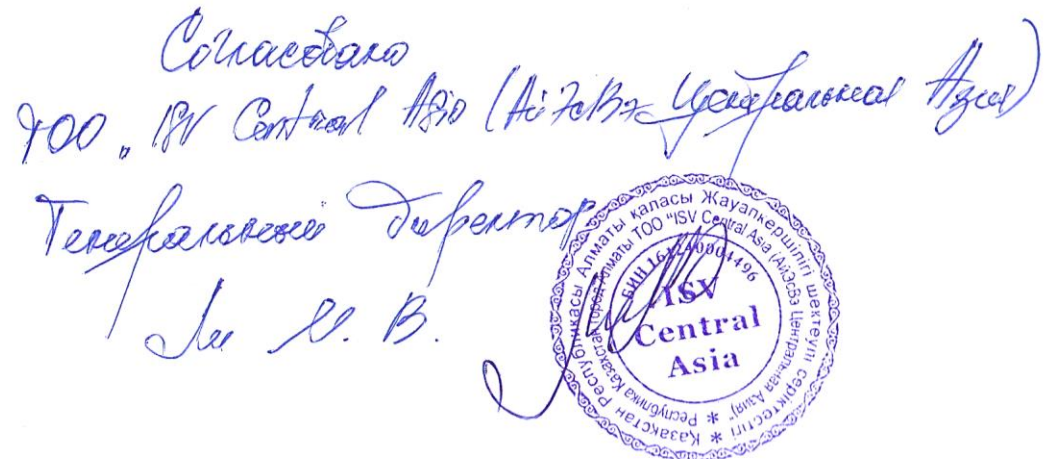 Согласовано
ТОО "ISV Central Asia (АйЭсВэ Центральная Азия)
Генеральный директор
Ли И. В.
Қазақстан Республикасы Алматы қаласы Жауапкершілігі шектеулі серіктестігі
Республика Казахстан город Алматы ТОО "ISV Central Asia (АйЭсВэ Центральная Азия)"
ISV
Central
Asia